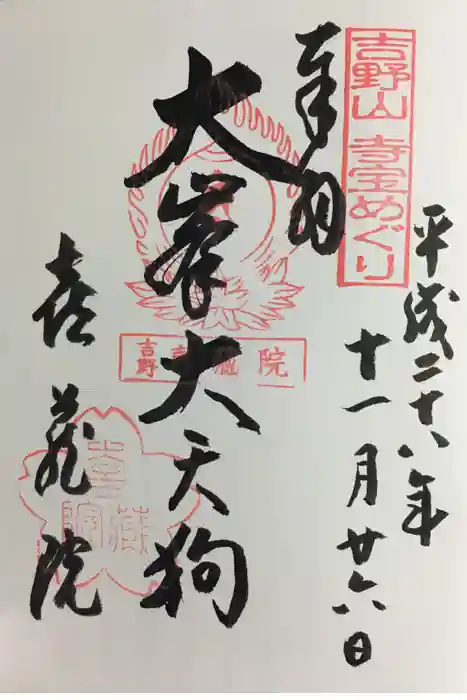 吉野山 寺宝めぐり
平成二十八年
十一月廿六日
奉拝
大峯大天狗
吉野 喜蔵院
喜蔵院
喜蔵院